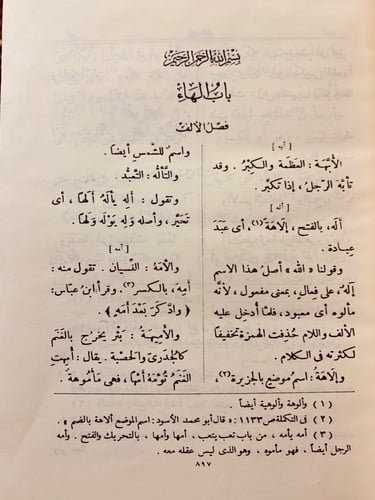 بسم الله الرحمن الرحيم
باب الهاء
فصل الألف
[ أبه ]
الأُبَّهة : العظمة والكِبْرُ . وقد
تأبَّه الرَّجلُ ، إذا تكبَّر .
[ أله ]
أَلَه ، بالفتح ، إلَاهَةً (١) ، أى عَبَدَ
عِبادة .
وقولنا « الله » أصلُ هذا الاسم
إلَهٌ ، على فِعالٍ ، بمعنى مفعول ، لأنَّه
مألوه أى معبود ، فلمَّا أدخل عليه
الألف واللام حُذِفت الهمزة تخفيفًا
لكثرته فى الكلام .
وإلَاهَةُ : اسم موضعٍ بالجزيرة (٢) ،
واسمٌ للشَّمسِ أيضاً .
والتَّأَلُّه : التَّعبُّد .
وتقول : أَلِهَ يألَهُ أَلَهًا ، أى
تَحيَّر ، وأصله وَلِهَ يَوْلَهُ وَلَهًا .
[ أمه ]
والأَمَهُ : النِّسيان . تقول منه :
أَمِهَ ، بالكسر (٣) . وقرأ ابنُ عبّاس :
﴿ وادَّكَرَ بَعْدَ أَمَهٍ ﴾ .
والأمِيهَةُ : بَثْر يخرُج بالغَنَم
كالجُدَرىّ والحَصْبة . يقال : أُمِهَتِ
الغنمُ تُؤْمَهُ أَمْهًا ، فهى مأموهَةٌ .
(١) وألوهة وألوهية أيضاً .
(٢) فى التكملة ص ١١٣٣ : « قال أبو محمد الأسود : اسم الموضع ألاهة بالضم » .
(٣) أمه يأمه ، من باب تعب يتعب ، أمهاً وأمها ، بالتحريك والفتح . وأمه
الرجل أيضاً ، فهو مأموه ، وهو الذى ليس عقله معه .
٨٩٧